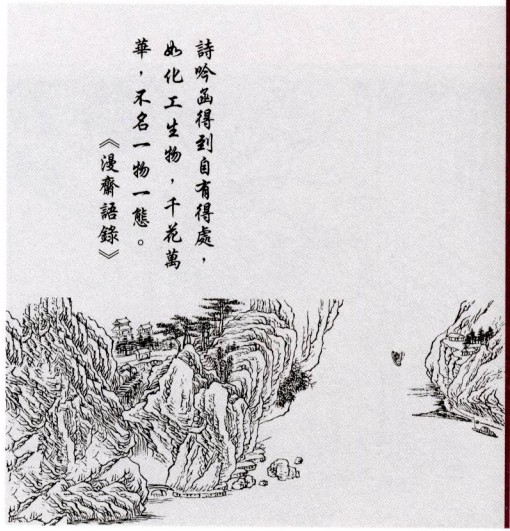 詩吟函得到自有得處，
如化工生物，千花萬
華，不名一物一態。
《漫齋語錄》